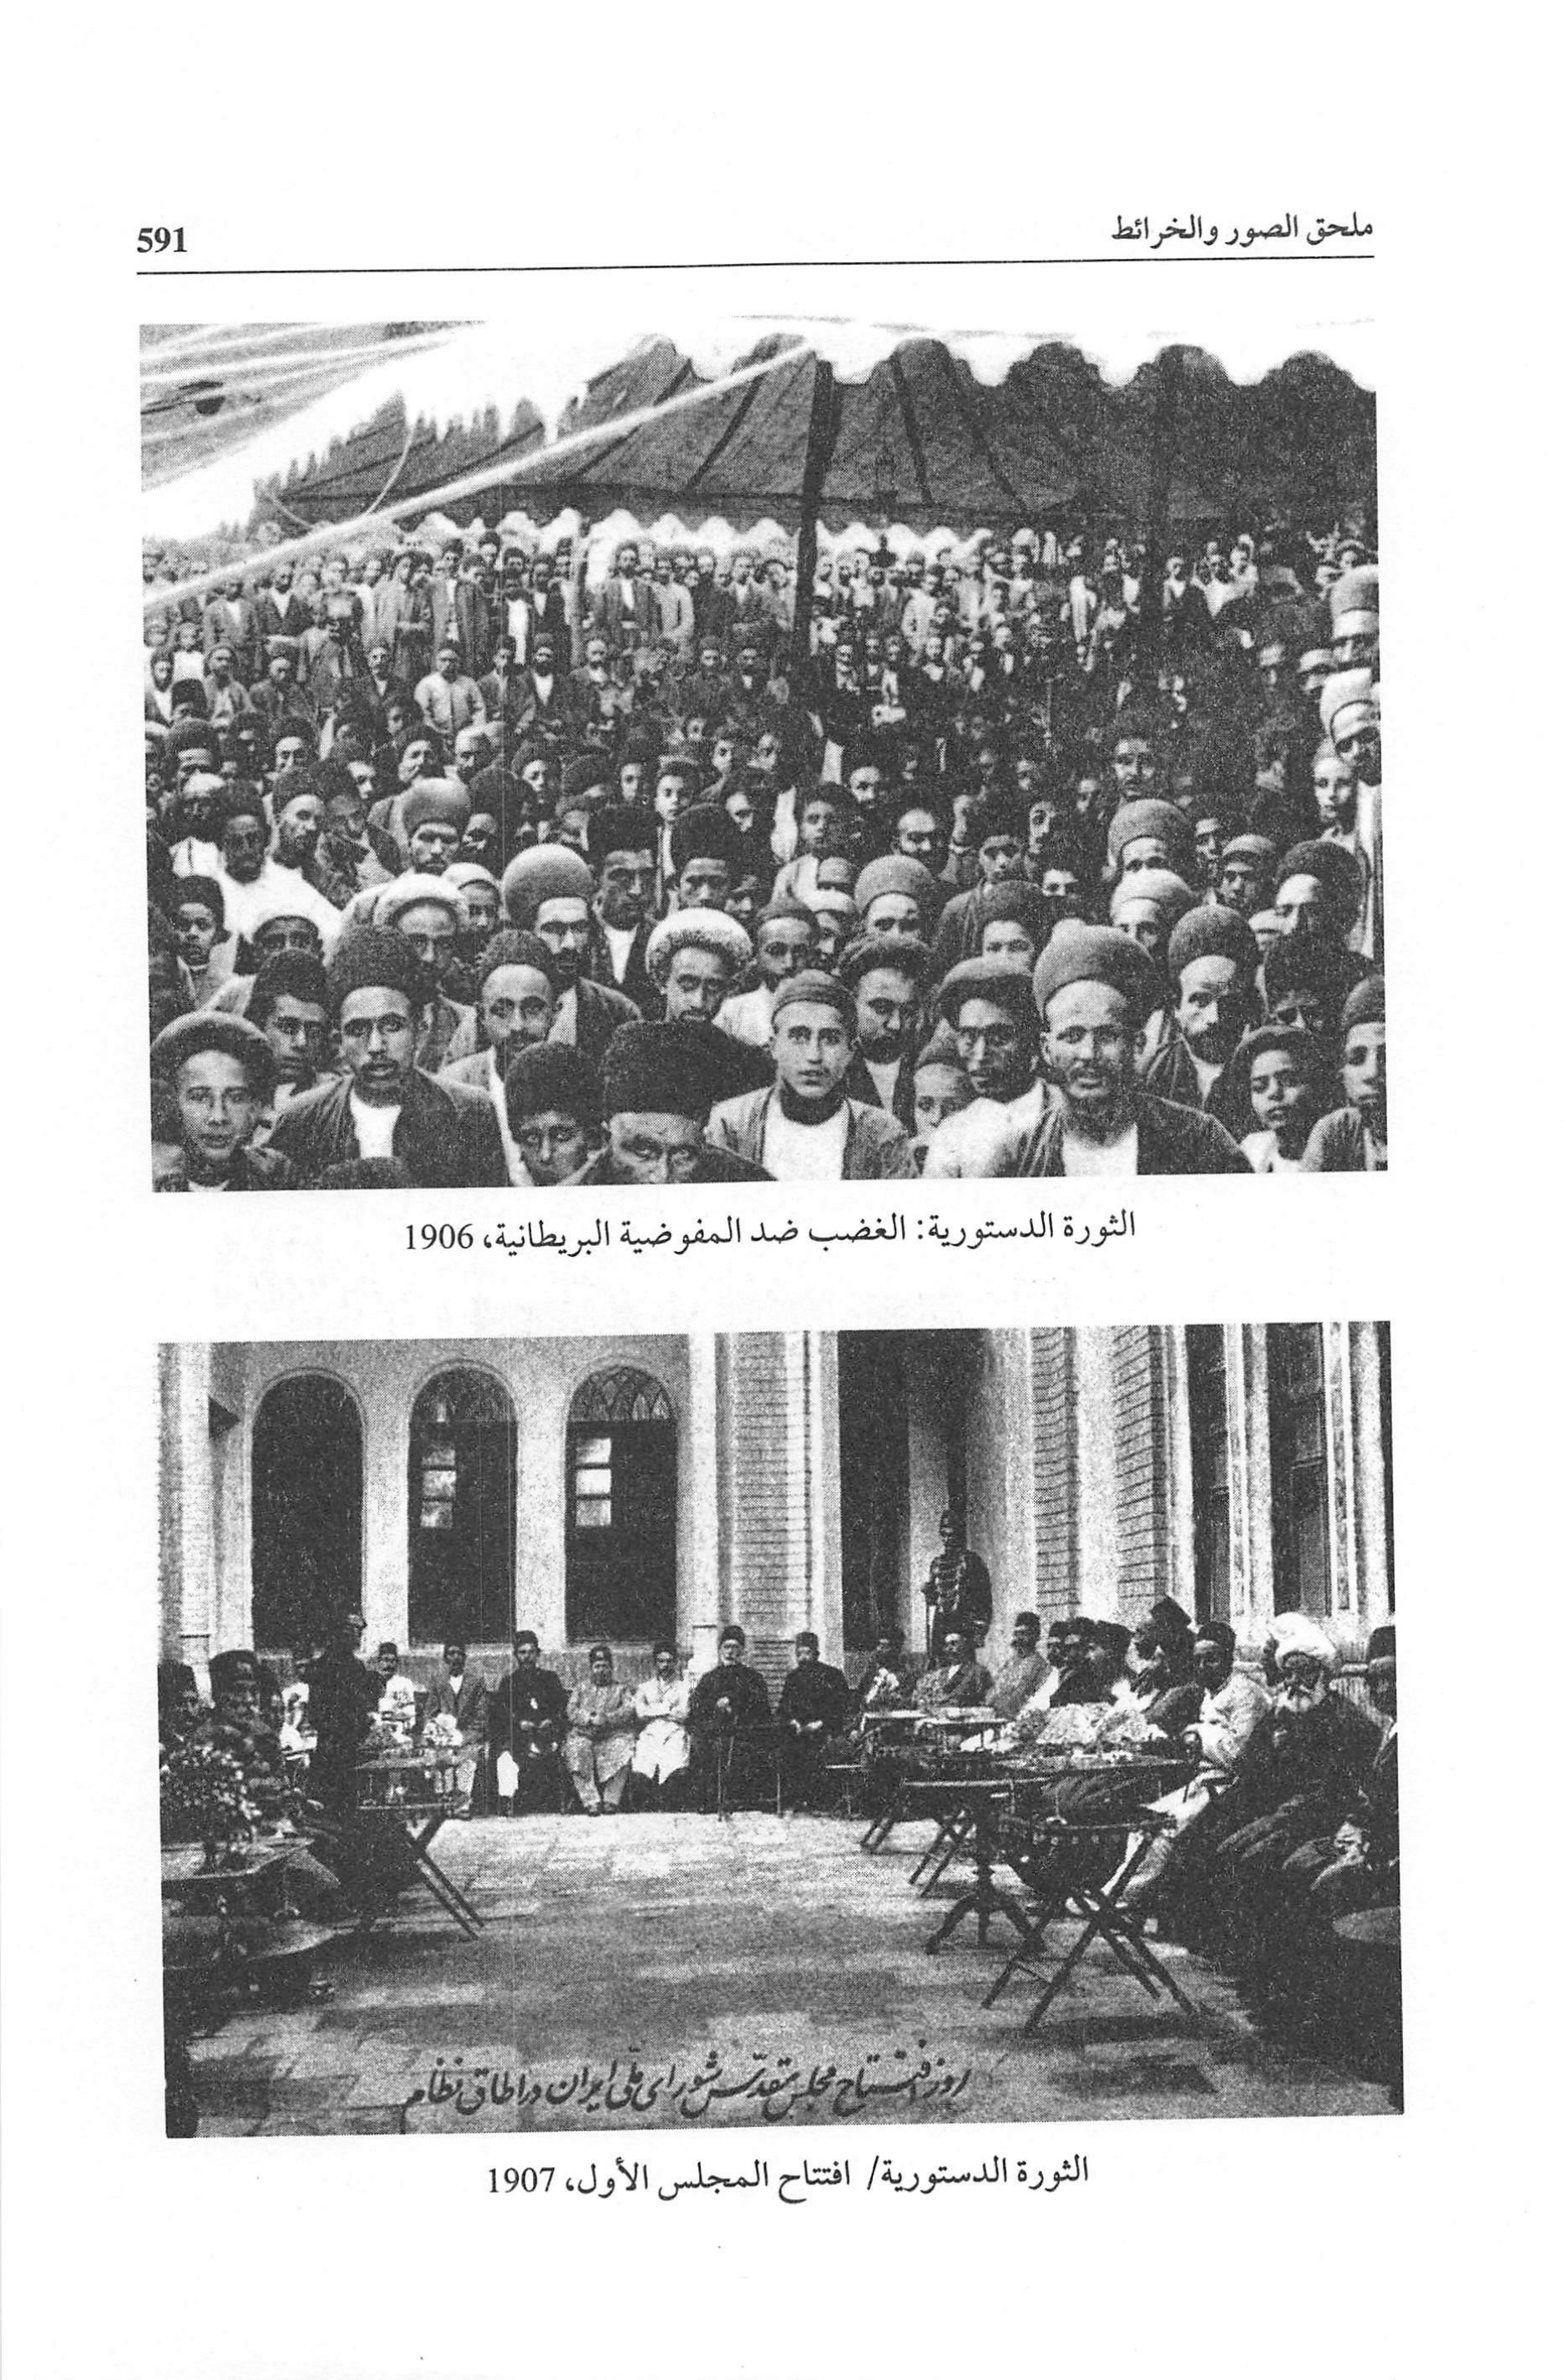 ملحق الصور والخرائط
591
الثورة الدستورية: الغضب ضد المفوضية البريطانية، 1906
روز افتتاح مجلس مقدّس شورای ملّی ایران در اطاق نظام
الثورة الدستورية/ افتتاح المجلس الأول، 1907